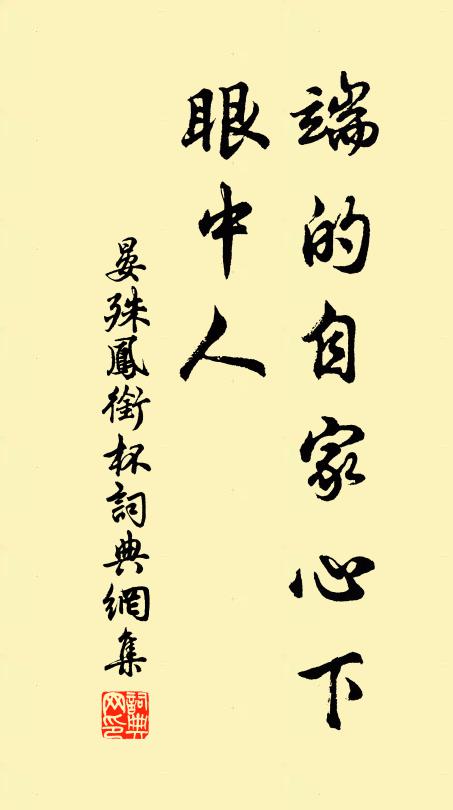 端的自家心下
眼中人
晏殊鳳銜杯詞典網集
詞典网印